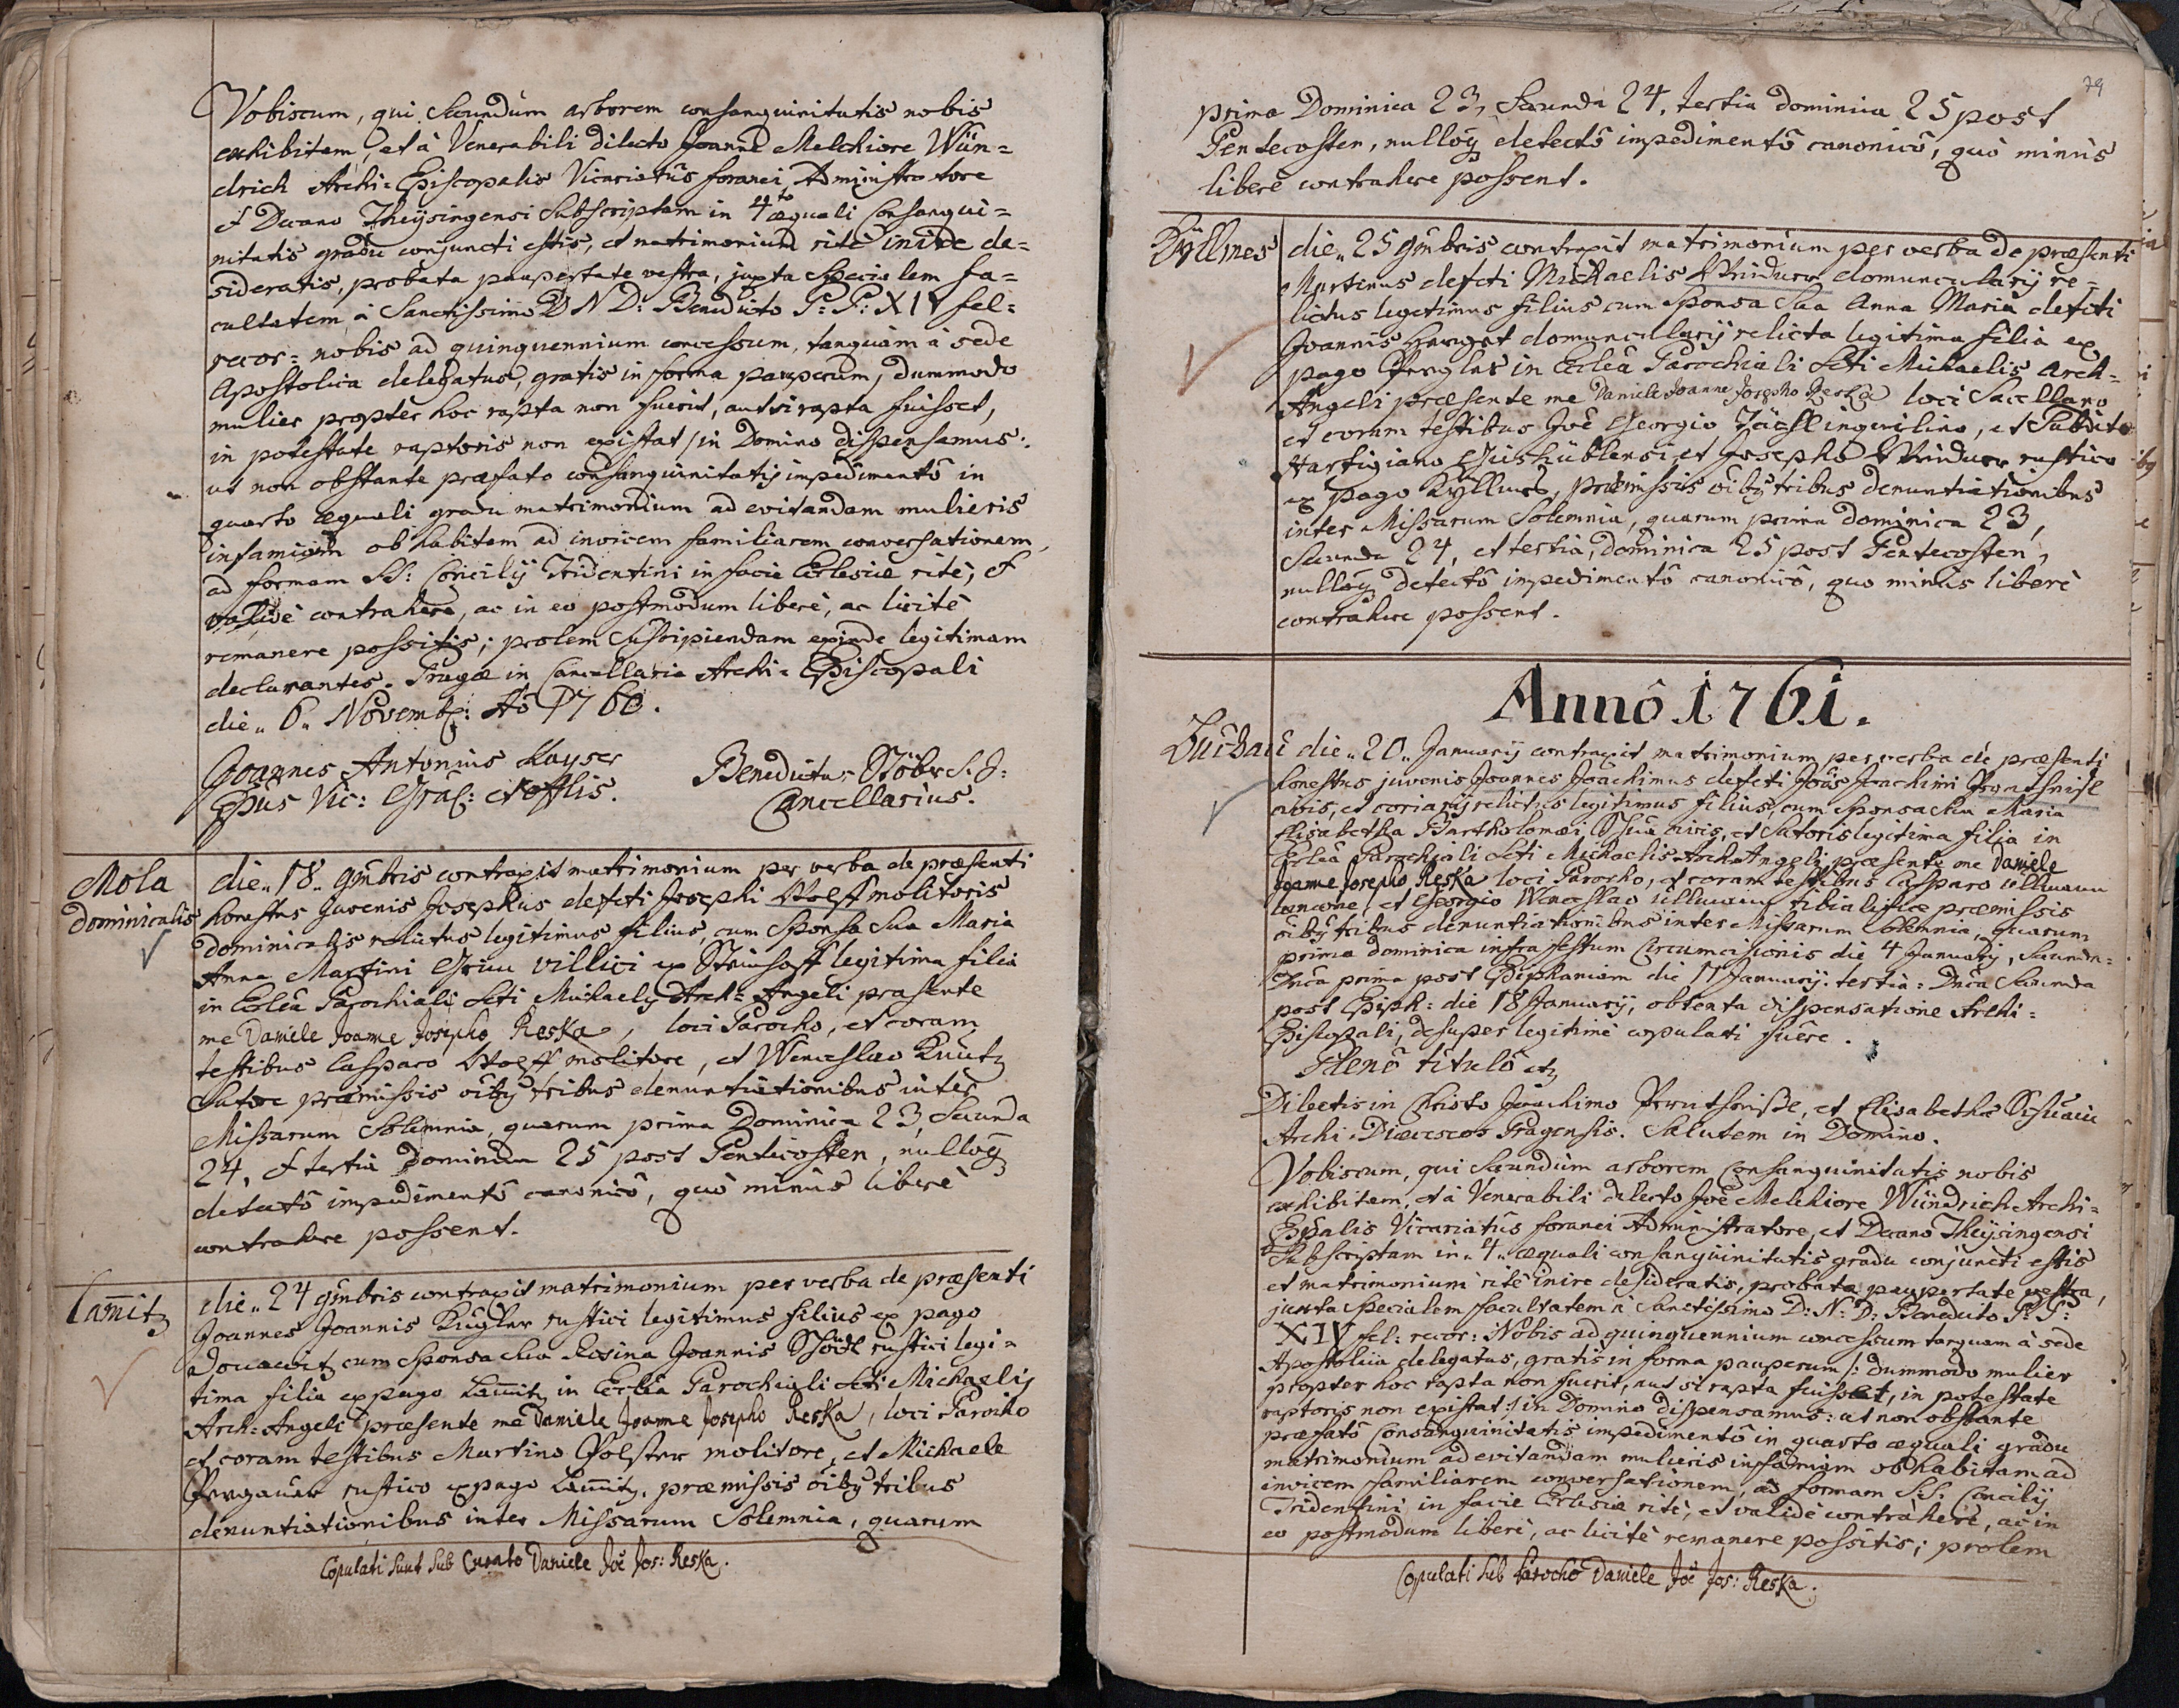 Vobiscum, qui Secundùm arborem consanguinitatis nobis
exhibitam, et à Venerabili dilecto Joanne Melchiore Wün=
drich Archi=Episcopalis Vicariatûs foranei Administratore
et Decano Theÿsingensi Subscriptam in 4to æquali Consangui=
nitatis gradu conjuncti estis, et matrimonium ritè inire de=
sideratis, probata paupertate vestra, juxta Specialem fa=
cultatem à Sanctissimo D N D: Benedicto P: P: XIV fel:
recor= nobis ad quinquennium concessam, tanquàm à sede
Apostolica delegatus, gratis in forma pauperum, dummodo
mulier propter hoc rapta non fuerit, aut si rapta fuisset,
in potestate raptoris non existat / in Domino dispensamus:
ut non obstante præfato consanguinitatis impedimentô in
quarto æquali gradu matrimonium ad evitandam mulieris
infamiam ob habitam ad invicem familiarem conversationem,
ad formam SS: Concilij Tridentini in facie Ecclesiæ ritè, et
validè contrahere, ac in eo postmodum liberè, ac licitè
remanere possitis; prolem suscipiendam exinde legitimam
declarantes. Pragæ in Cancellaria Archi=Episcopali
die „ 6 „ Novemb: Aô 1760.
Joannes Antonius Kayser
Eppus Vic: Gralis et Offlis.
Benedictus Stöbr S. J:
Cancellarius.
Mola
Dominicalis
die „ 18 „ 9mbris contraxit matrimonium per verba de præsenti
honestus Juvenis Josephus defcti Josephi Wolff molitoris
Dominicalis relictus legitimus filius, cum Sponsa Sua Maria
Anna Martini Grim villici ex Steinhoff legitima filia
in Ecclea Parochiali Scti Michaelis Arch=Angeli præsente
me Daniele Joanne Josepho Reska, loci Parocho, et coram
testibus Casparo Wolff molitore, et Wenceslao Kuntz
Sutore præmissis oibg tribus denuntiationibus inter
Missarum Solemnia, quarum prima Dominica 23, Secunda
24, et tertia Dominica 25 post Pentecosten, nullog
detectô impedimentô canonicô, quò minùs liberè
contrahere possent.
Lam̄itz
die „ 24 9mbris contraxit matrimonium per verba de præsenti
Joannes Joannis Kugler rustici legitimus filius ex pago
cum Sponsa Sua Rosina Joannis rustici legi=
tima filia ex pago Lam̄itz in Ecclea Parochiali Scti Michaelis
Arch=Angeli præsente me Daniele Joanne Josepho Reska, loci Parocho
et coram testibus Martino Polster molitore, et Michaele
rustico ex pago Lam̄itz, præmissis oibg tribus
denuntiationibus inter Missarum Solemnia, quarum
Copulati sunt sub Curato Daniele Joe Jos: Reska.
79
prima Dominica 23, Secunda 24, tertia dominica 25 post
Pentecosten, nullog detectô impedimentô canonicô, quò minùs
liberè contrahere possent.
Kÿllmes
die „ 25 9mbris contraxit matrimonium per verba de præsenti
Martinus defcti Michaelis domuncularij re=
lictus legitimus filius cum Sponsa Sua Anna Maria defcti
Joannis domuncularij relicta legitima filia ex
pago in Ecclea Parochiali Scti Michaelis Arch=
Angeli præsente me Daniele Joanne Josepho Reska loci Sacellano
et coram testibus Joe Georgio inquilino, et Subdito
Hartigiano et Josepho rustico
ex pago Kÿllmes, præmissis oibg tribus denuntiationibus
inter Missarum Solemnia, quarum prima dominica 23,
Secunda 24, et tertia dominica 25 post Pentecosten,
nullog detectô impedimentô canonicô, quo minùs liberè
contrahere possent.
Annô 1761.
Buchau
die „ 20 „ Januarij contraxit matrimonium per verba de præsenti
honestus juvenis Joannes Joachimus defcti Jois Joachimi
civis, et coriarij relictus legitimus filius, cum Sponsa Sua Maria
Elisabetha Bartholomæi civis, et Sutoris legitima filia in
Ecclea Parochiali Scti Michaelis Arch Angeli præsente me Daniele
Joanne Josepho Reska loci Parocho, et coram testibus Casparo Ullmann
lanione, et Georgio Wenceslao Ullmann tibialifice præmissis
oibg tribus denuntiationibus inter Missarum Solemnia, quarum
prima dominica infra festum Circumcisionis die 4 Januarij, Secun=
Dnca prima post Epiphaniam die 11 Januarij. tertia: Dnca Secunda
post Epiph: die 18 Januarij, obtenta dispensatione Archi=
Episcopali, desuper legitimè copulati fuêre.
Plenô titulô etz
Dilectis in Christo Joachimo et Elisabethæ
Archi=Diæceseos Pragensis. Salutem in Domino.
Vobiscum, qui Secundùm arborem Consanguinitatis nobis
exhibitam, et à Venerabili dilecto Joe Melchiore Wündrich Archi=
Eppalis Vicariatûs foranei Administratore, et Decano Theÿsingensi
Subscriptam in „ 4 „ æquali consanguinitatis gradu conjuncti estis
et matrimonium ritè inire desideratis, probata paupertate vestra,
juxta Specialem facultatem à Sanctissimo D: N: D: Benedicto P: P:
XIV fel: recor: Nobis ad quinquennium concessam tanquam à sede
Apostolica delegatus, gratis in forma pauperum /: dummodo mulier
propter hoc rapta non fuerit, aut si rapta fuisset, in potestate
raptoris non existat :/ in Domino dispensamus: ut non obstante
præfatô Consanguinitatis impedimentô in quarto æquali gradu
matrimonium ad evitandam mulieris infamiam ob habitam ad
invicem familiarem conversationem, ad formam SS. Concilij
Tridentini in facie Ecclesiæ ritè, et validè contrahere, ac in
eo postmodum liberè, ac licitè remanere possitis; prolem
Copulati sub Parocho Daniele Joe Jos: Reska.